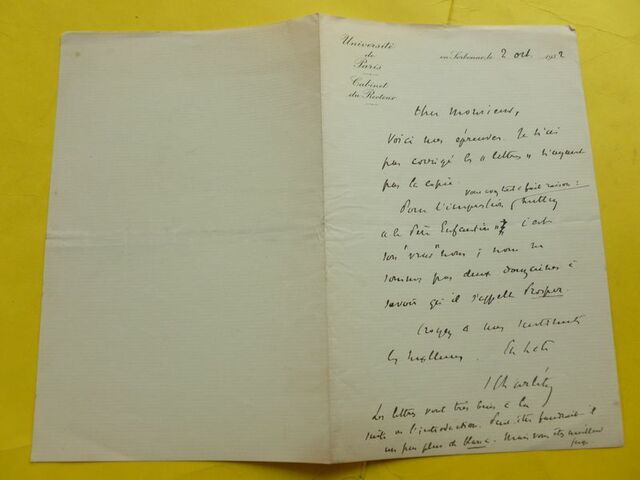 Université
de
Paris
Cabinet
du Recteur
en Sorbonne, le 2 oct. 1932
Cher Monsieur,
Voici mes épreuves. Je n'ai
pas corrigé les "lettres" n'ayant
pas la copie.
vous avez tout à fait raison :
Pour l'impression, mettez
a le Père Enfantin" c'est
son "vrai" nom ; nous ne
sommes pas deux douzaines à
savoir qu'il s'appelle Prosper.
Croyez à mes sentiments
les meilleurs. En hâte
S Charléty
Les lettres vont très bien à la
suite de l'introduction. Peut être faudrait il
un peu plus de blanc. Mais vous êtes meilleur
juge.